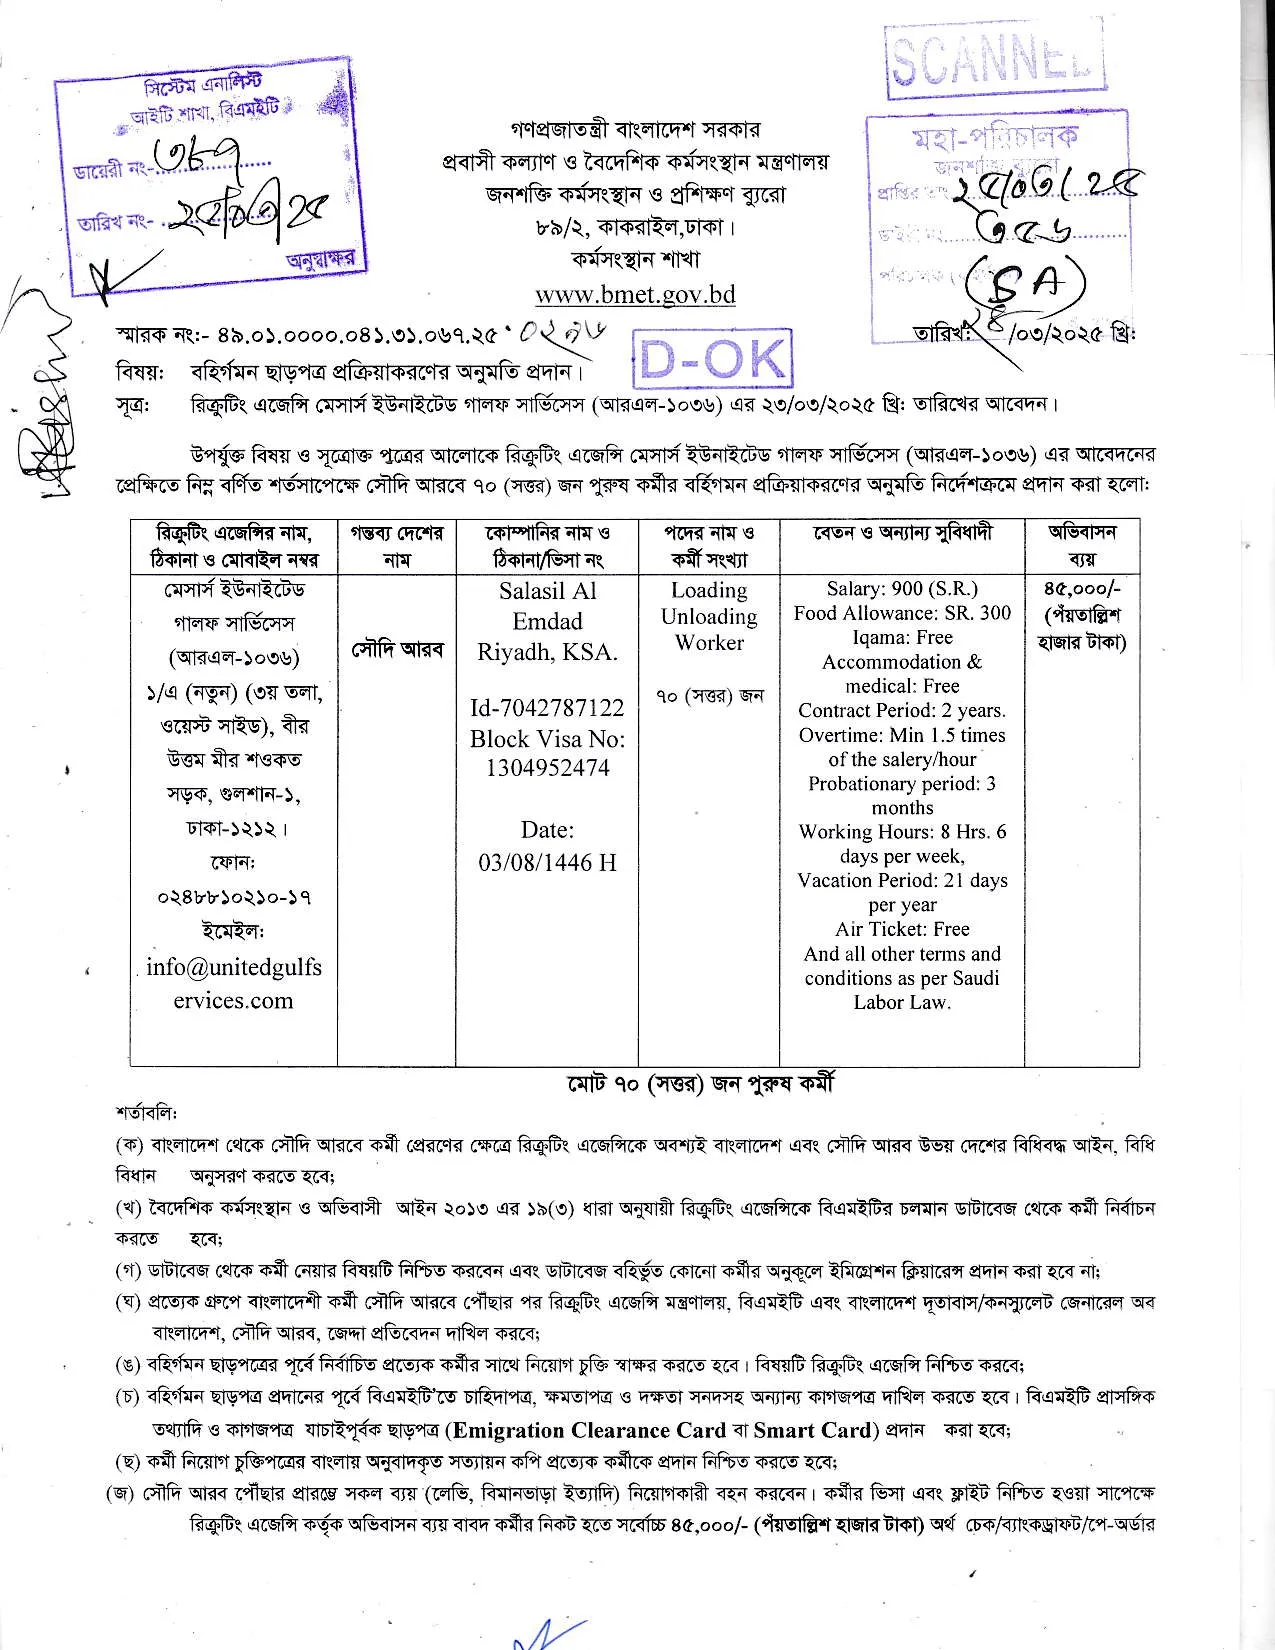 SCANNE
সিস্টেম এনালিস্ট
আইটি শাখা, বিএমইটি
ডায়েরী নং-
তারিখ নং- ২৫/০৩/২৫
অনুস্বাক্ষর
মহা-পরিচালক
জনশক্তি ব্যুরো
২৫/০৩/২৫
৩৫৬
(SA)
গণপ্রজাতন্ত্রী বাংলাদেশ সরকার
প্রবাসী কল্যাণ ও বৈদেশিক কর্মসংস্থান মন্ত্রণালয়
জনশক্তি কর্মসংস্থান ও প্রশিক্ষণ ব্যুরো
৮৯/২, কাকরাইল,ঢাকা।
কর্মসংস্থান শাখা
www.bmet.gov.bd
স্মারক নং:- ৪৯.০১.০০০০.০৪১.৩১.০৬৭.২৫
তারিখ: ২৪/০৩/২০২৫ খ্রি:
D-OK
বিষয়: বহির্গমন ছাড়পত্র প্রক্রিয়াকরণের অনুমতি প্রদান।
সূত্র: রিক্রুটিং এজেন্সি মেসার্স ইউনাইটেড গালফ সার্ভিসেস (আরএল-১০৩৬) এর ২৩/০৩/২০২৫ খ্রি: তারিখের আবেদন।
উপর্যুক্ত বিষয় ও সূত্রোক্ত পত্রের আলোকে রিক্রুটিং এজেন্সি মেসার্স ইউনাইটেড গালফ সার্ভিসেস (আরএল-১০৩৬) এর আবেদনের
প্রেক্ষিতে নিম্ন বর্ণিত শর্তসাপেক্ষে সৌদি আরবে ৭০ (সত্তর) জন পুরুষ কর্মীর বর্হিগমন প্রক্রিয়াকরণের অনুমতি নির্দেশক্রমে প্রদান করা হলো:
রিক্রুটিং এজেন্সির নাম,
ঠিকানা ও মোবাইল নম্বর
গন্তব্য দেশের
নাম
কোম্পানির নাম ও
ঠিকানা/ভিসা নং
পদের নাম ও
কর্মী সংখ্যা
বেতন ও অন্যান্য সুবিধাদী
অভিবাসন
ব্যয়
মেসার্স ইউনাইটেড
গালফ সার্ভিসেস
(আরএল-১০৩৬)
১/এ (নতুন) (৩য় তলা,
ওয়েস্ট সাইড), বীর
উত্তম মীর শওকত
সড়ক, গুলশান-১,
ঢাকা-১২১২।
ফোন:
০২৪৮৮১০২১০-১৭
ইমেইল:
info@unitedgulfs
ervices.com
সৌদি আরব
Salasil Al
Emdad
Riyadh, KSA.
Id-7042787122
Block Visa No:
1304952474
Date:
03/08/1446 H
Loading
Unloading
Worker
৭০ (সত্তর) জন
Salary: 900 (S.R.)
Food Allowance: SR. 300
Iqama: Free
Accommodation &
medical: Free
Contract Period: 2 years.
Overtime: Min 1.5 times
of the salery/hour
Probationary period: 3
months
Working Hours: 8 Hrs. 6
days per week,
Vacation Period: 21 days
per year
Air Ticket: Free
And all other terms and
conditions as per Saudi
Labor Law.
৪৫,০০০/-
(পঁয়তাল্লিশ
হাজার টাকা)
মোট ৭০ (সত্তর) জন পুরুষ কর্মী
শর্তাবলি:
(ক) বাংলাদেশ থেকে সৌদি আরবে কর্মী প্রেরণের ক্ষেত্রে রিক্রুটিং এজেন্সিকে অবশ্যই বাংলাদেশ এবং সৌদি আরব উভয় দেশের বিধিবদ্ধ আইন, বিধি
বিধান অনুসরণ করতে হবে;
(খ) বৈদেশিক কর্মসংস্থান ও অভিবাসী আইন ২০১৩ এর ১৯(৩) ধারা অনুযায়ী রিক্রুটিং এজেন্সিকে বিএমইটির চলমান ডাটাবেজ থেকে কর্মী নির্বাচন
করতে হবে;
(গ) ডাটাবেজ থেকে কর্মী নেয়ার বিষয়টি নিশ্চিত করবেন এবং ডাটাবেজ বহির্ভূত কোনো কর্মীর অনুকূলে ইমিগ্রেশন ক্লিয়ারেন্স প্রদান করা হবে না;
(ঘ) প্রত্যেক গ্রুপে বাংলাদেশী কর্মী সৌদি আরবে পৌঁছার পর রিক্রুটিং এজেন্সি মন্ত্রণালয়, বিএমইটি এবং বাংলাদেশ দূতাবাস/কনস্যুলেট জেনারেল অব
বাংলাদেশ, সৌদি আরব, জেদ্দা প্রতিবেদন দাখিল করবে;
(ঙ) বহির্গমন ছাড়পত্রের পূর্বে নির্বাচিত প্রত্যেক কর্মীর সাথে নিয়োগ চুক্তি স্বাক্ষর করতে হবে। বিষয়টি রিক্রুটিং এজেন্সি নিশ্চিত করবে;
(চ) বহির্গমন ছাড়পত্র প্রদানের পূর্বে বিএমইটি'তে চাহিদাপত্র, ক্ষমতাপত্র ও দক্ষতা সনদসহ অন্যান্য কাগজপত্র দাখিল করতে হবে। বিএমইটি প্রাসঙ্গিক
তথ্যাদি ও কাগজপত্র যাচাইপূর্বক ছাড়পত্র (Emigration Clearance Card বা Smart Card) প্রদান করা হবে;
(ছ) কর্মী নিয়োগ চুক্তিপত্রের বাংলায় অনুবাদকৃত সত্যায়ন কপি প্রত্যেক কর্মীকে প্রদান নিশ্চিত করতে হবে;
(জ) সৌদি আরব পৌঁছার প্রারম্ভে সকল ব্যয় (লেভি, বিমানভাড়া ইত্যাদি) নিয়োগকারী বহন করবেন। কর্মীর ভিসা এবং ফ্লাইট নিশ্চিত হওয়া সাপেক্ষে
রিক্রুটিং এজেন্সি কর্তৃক অভিবাসন ব্যয় বাবদ কর্মীর নিকট হতে সর্বোচ্চ ৪৫,০০০/- (পঁয়তাল্লিশ হাজার টাকা) অর্থ চেক/ব্যাংকড্রাফট/পে-অর্ডার